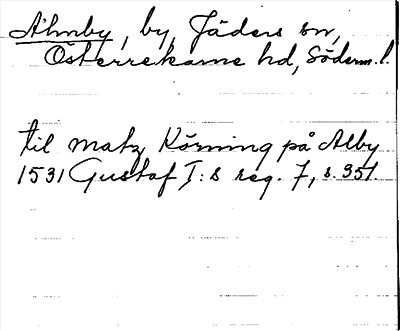 Åhnby, by, Jäders sn,
Österrekarne hd, Söderm. l.
til Matz Körning på Alby
1531 Gustaf I:s reg. 7, s. 351.